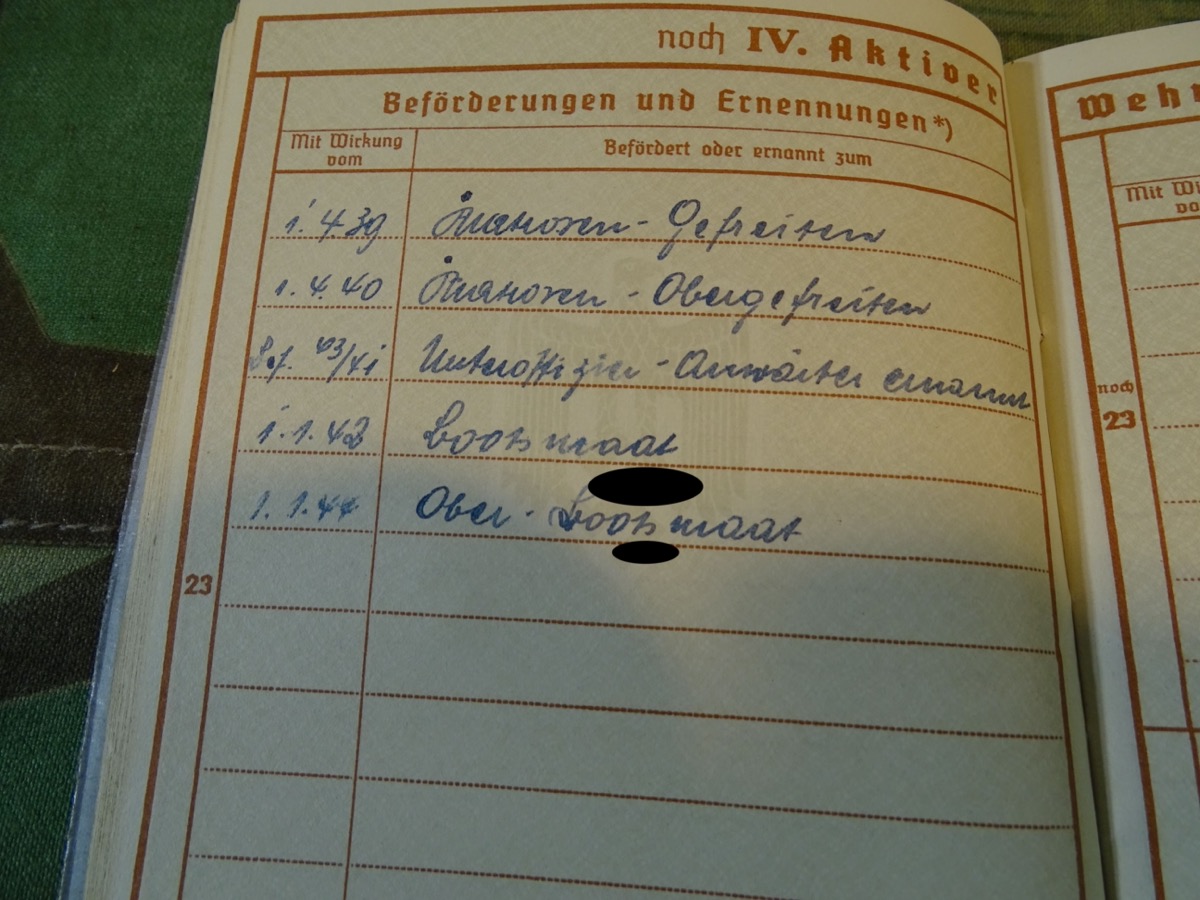 noch IV. Aktiver
Beförderungen und Ernennungen*)
Mit Wirkung
vom
Befördert oder ernannt zum
1. 4 39 Matrosen - Gefreiten
1. 4. 40 Matrosen - Obergefreiten
03/41 Unteroffizier - Anwärter ernannt
1. 1. 42 Bootsmaat
1. 1. 44 Ober - Bootsmaat
23
Wehr
Mit Wi
vo
noch
23